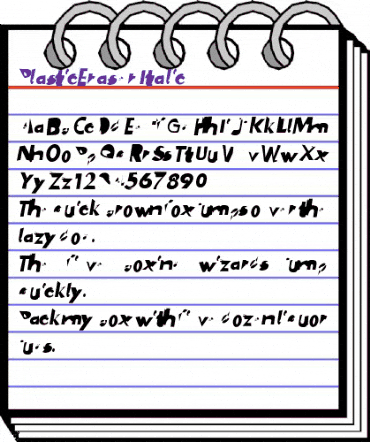 PlasticEraser Italic
AaBbCcDdEeFfGgHhIiJjKkLlMm
NnOoPpQqRrSsTtUuVvWwXx
YyZz1234567890
The quick brown fox jumps over the
lazy dog.
The five boxing wizards jump
quickly.
Pack my box with five dozen liquor
jugs.